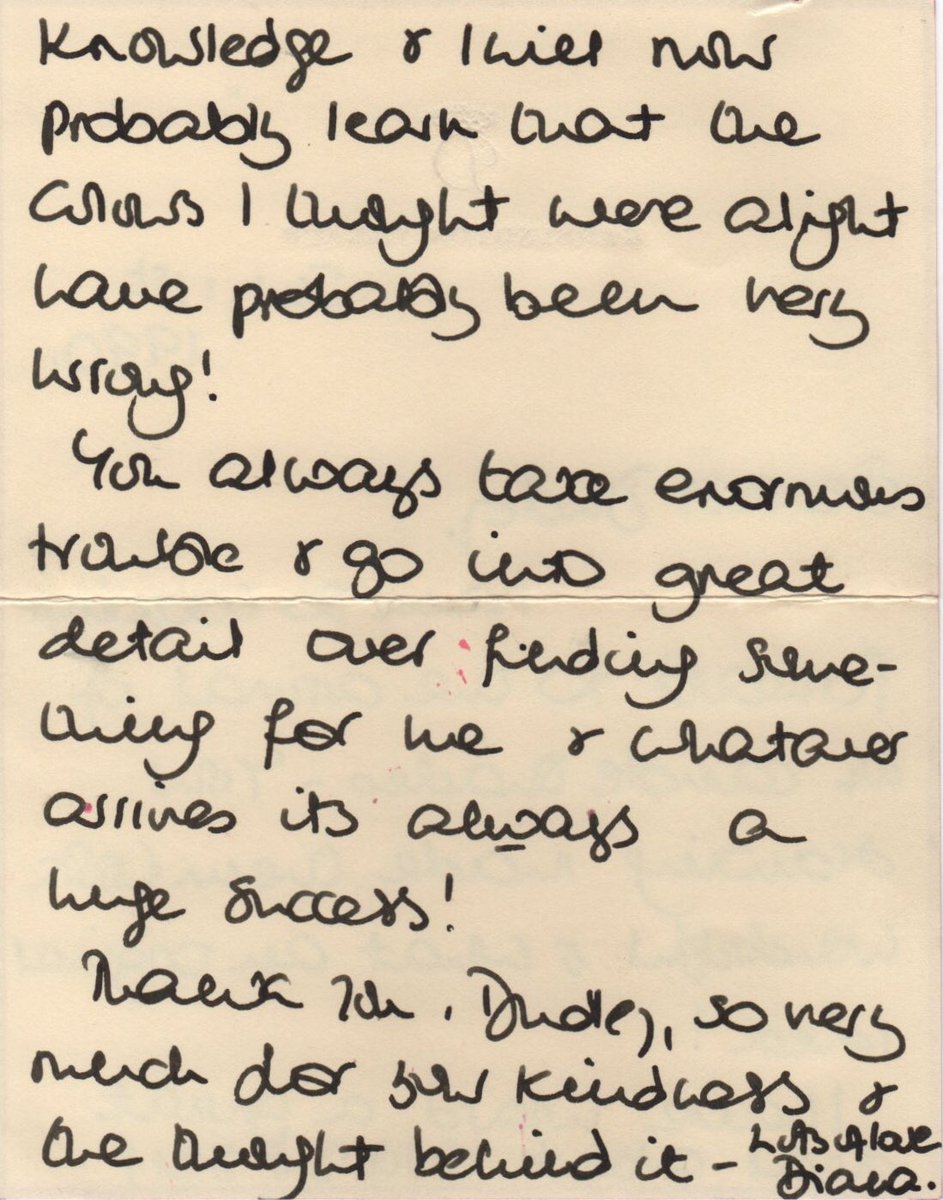 Knowledge & I will now
probably learn that the
colours I thought were alright
have probably been very
wrong!
You always take enormous
trouble & go into great
detail over finding some-
thing for me & whatever
arrives its always a
huge success!
Thank You, Dudley, so very
much for your kindness &
the thought behind it - Lots of love
Diana.